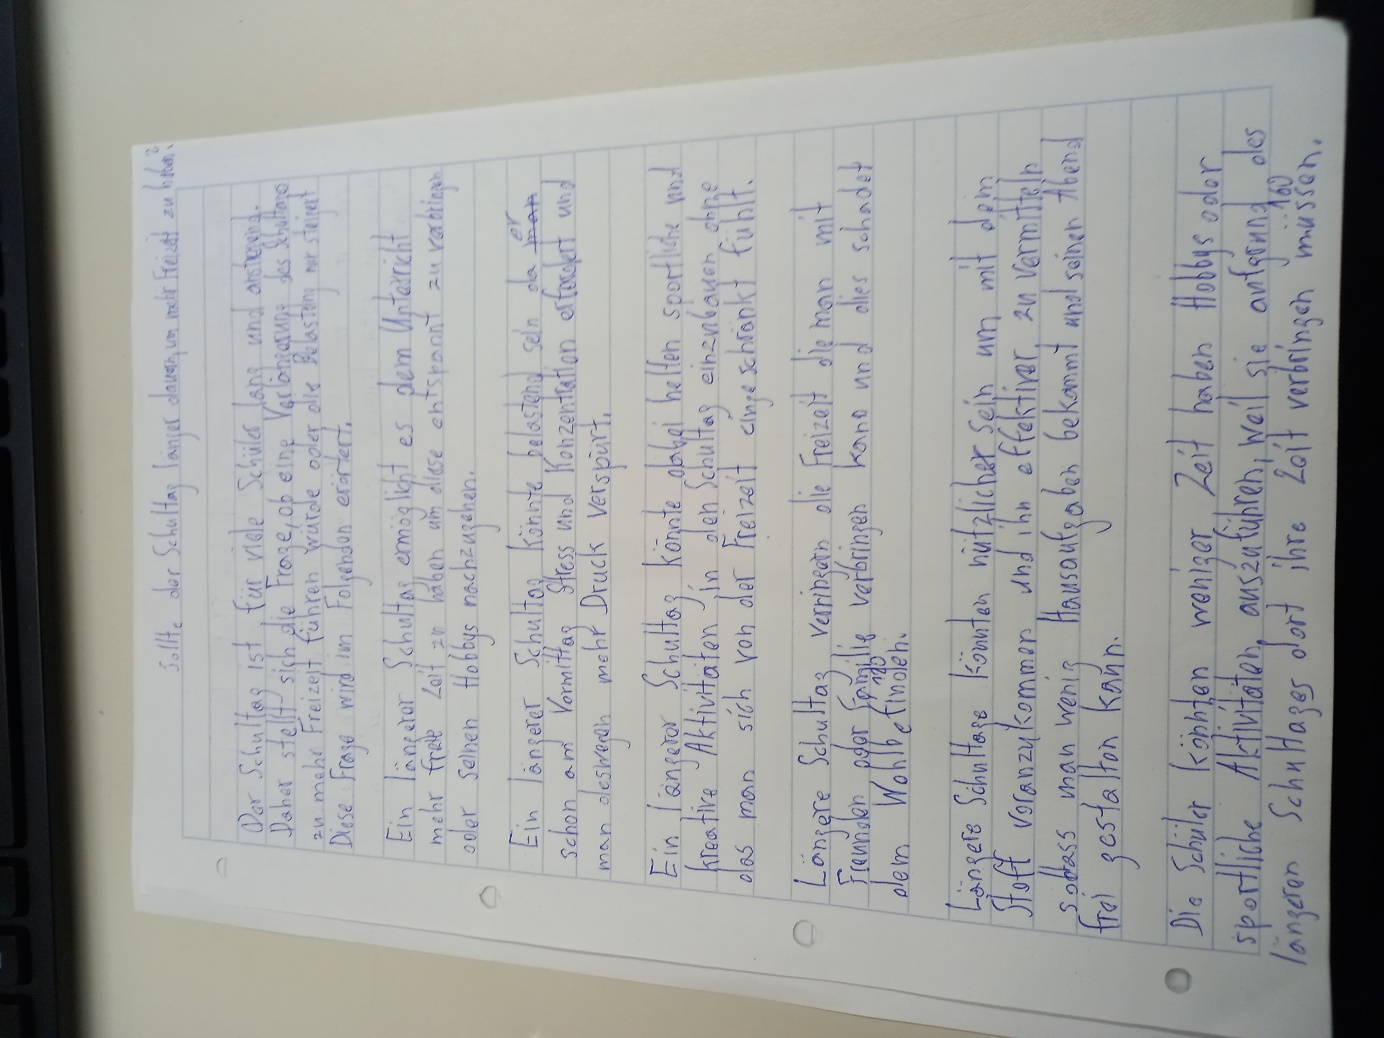 Sollte der Schultag länger dauern um mehr Freizeit zu haben?
Der Schultag ist für viele Schüler lang und anstrengend.
Daher stellt sich die Frage, ob eine Verlängerung des Schultags
zu mehr Freizeit führen würde oder die Belastung nur steigert
Diese Frage wird im Folgenden erörtert.
Ein längerer Schultag ermöglicht es dem Unterricht
mehr freie Zeit zu haben um diese entspannt zu verbringen
oder seinen Hobbys nachzugehen.
Ein längerer Schultag könnte belastend sein da man er
schon am Vormittag Stress und Konzentration erfordert und
man deswegen mehr Druck verspürt.
Ein längerer Schultag könnte dabei helfen sportliche und
kreative Aktivitäten in den Schultag einzubauen ohne
das man sich von der Freizeit eingeschränkt fühlt.
Längere Schultag verringern die Freizeit die man mit
Freunden oder Familie verbringen kann und dies schadet
dem Wohlbefinden. 120
Längere Schultage könnten nützlicher sein um mit dem
Stoff voranzukommen und ihn effektiver zu vermitteln
sodass man wenig Hausaufgaben bekommt und seinen Abend
frei gestalten kann.
Die Schüler könnten weniger Zeit haben Hobbys oder
sportliche Aktivitäten auszuführen, weil sie aufgrund des
längeren Schultages dort ihre Zeit verbringen müssen. 160